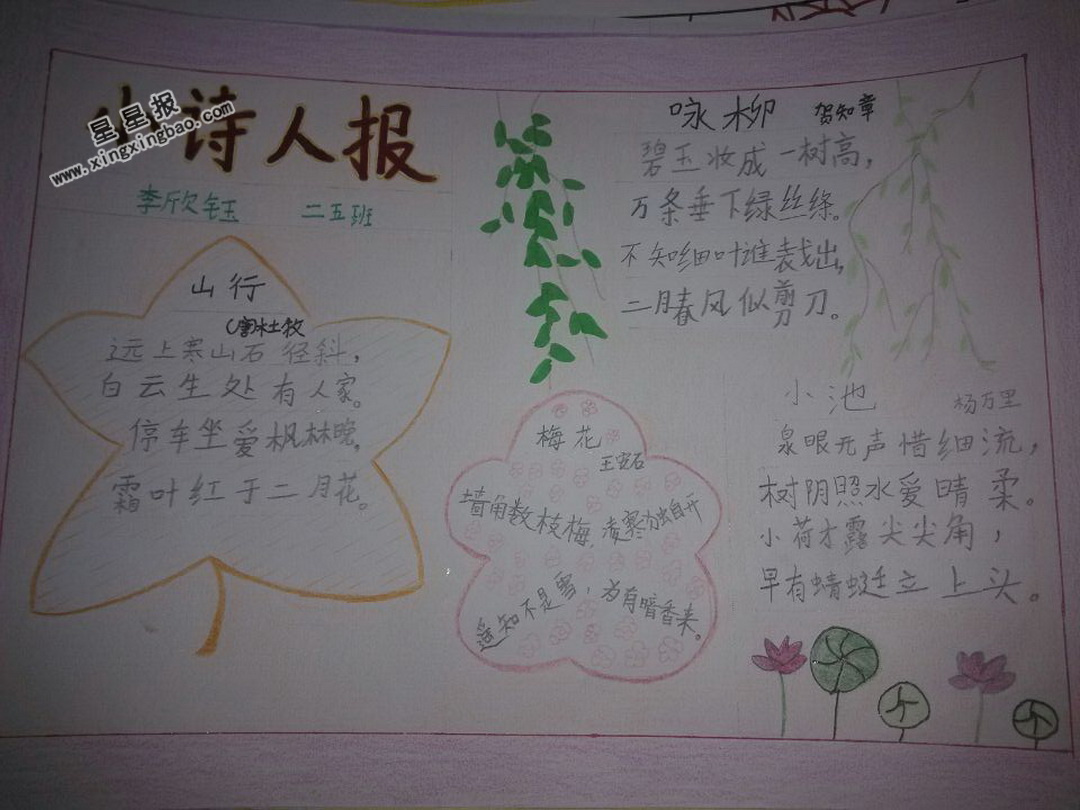 小诗人报
星星报
www.xingxingbao.com
李欣钰 二五班
山行
(唐)杜牧
远上寒山石径斜，
白云生处有人家。
停车坐爱枫林晚，
霜叶红于二月花。
梅花
王安石
墙角数枝梅，凌寒独自开
遥知不是雪，为有暗香来。
咏柳 贺知章
碧玉妆成一树高，
万条垂下绿丝绦。
不知细叶谁裁出，
二月春风似剪刀。
小池 杨万里
泉眼无声惜细流，
树阴照水爱晴柔。
小荷才露尖尖角，
早有蜻蜓立上头。